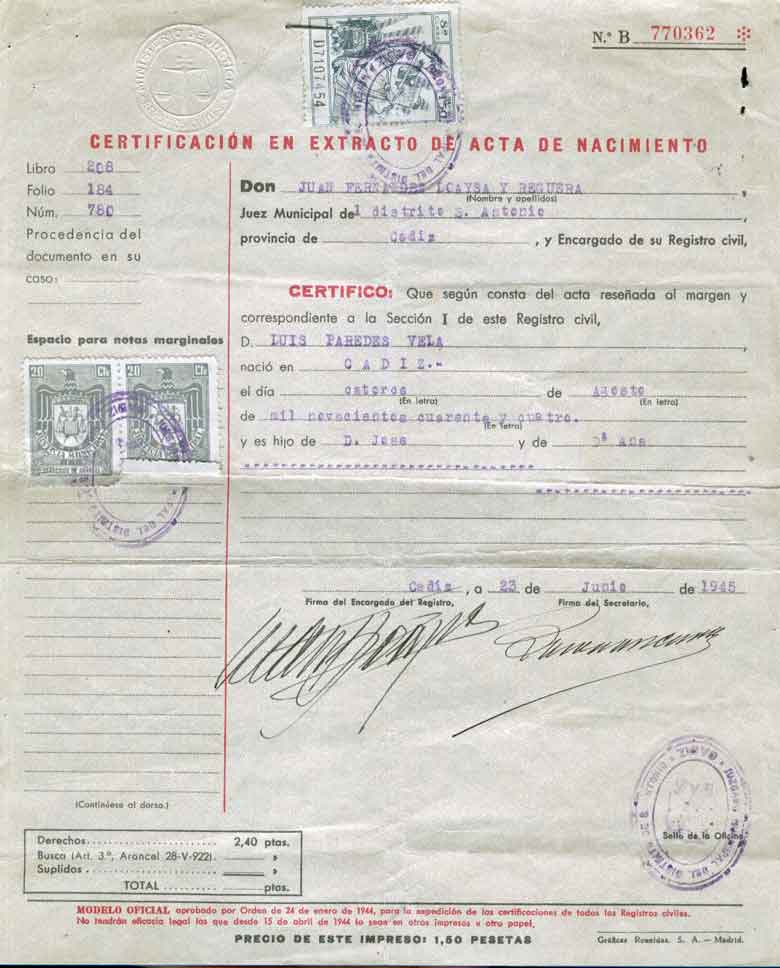 MINISTERIO DE JUSTICIA
8ª
CLASE
1,50
D7107454
N.º B 770362
CERTIFICACIÓN EN EXTRACTO DE ACTA DE NACIMIENTO
Libro 208
Folio 184
Núm. 780
Procedencia del
documento en su
caso:
Espacio para notas marginales
20 Cts
20 Cts
Don JUAN FERNANDEZ LOAYSA Y REGUERA,
(Nombre y apellidos)
Juez Municipal de l distrito S. Antonio,
provincia de Cadiz, y Encargado de su Registro civil,
CERTIFICO: Que según consta del acta reseñada al margen y
correspondiente a la Sección I de este Registro civil,
D. LUIS PAREDES VELA
nació en C A D I Z.-
el día catorce de Agosto
(En letra) (En letra)
de mil novecientos cuarenta y cuatro.
(En letra)
y es hijo de D. Jose y de Dª Ana
Cadiz, a 23 de Junio de 1945
Firma del Encargado del Registro, Firma del Secretario,
(Continúese al dorso.)
Sello de la Oficina
Derechos 2,40 ptas.
Busca (Art. 3.º, Arancel 28-V-922) »
Suplidos »
TOTAL ptas.
MODELO OFICIAL aprobado por Orden de 24 de enero de 1944, para la expedición de las certificaciones de todos los Registros civiles.
No tendrán eficacia legal las que desde 15 de abril de 1944 lo sean en otros impresos u otro papel.
PRECIO DE ESTE IMPRESO: 1,50 PESETAS
Gráficas Reunidas. S. A.—Madrid.